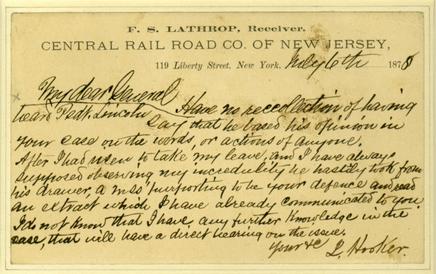 F. S. LATHROP, Receiver.
CENTRAL RAIL ROAD CO. OF NEW JERSEY,
119 Liberty Street, New York. July 6th 1878
My dear General
Have no reccollection of having
heard Pedt. Lincoln say that he based his opinion in
your case on the words, or actions of anyone.
After I had risen to take my leave, and I have always
supposed observing my incredulity he hastily took from
his drawer, a mss purporting to be your defence and read
an extract which I have already communicated to you
I do not know that I have any further knowledge in the
case, that will have a direct bearing on the issue.
Your &c J. Hooker.